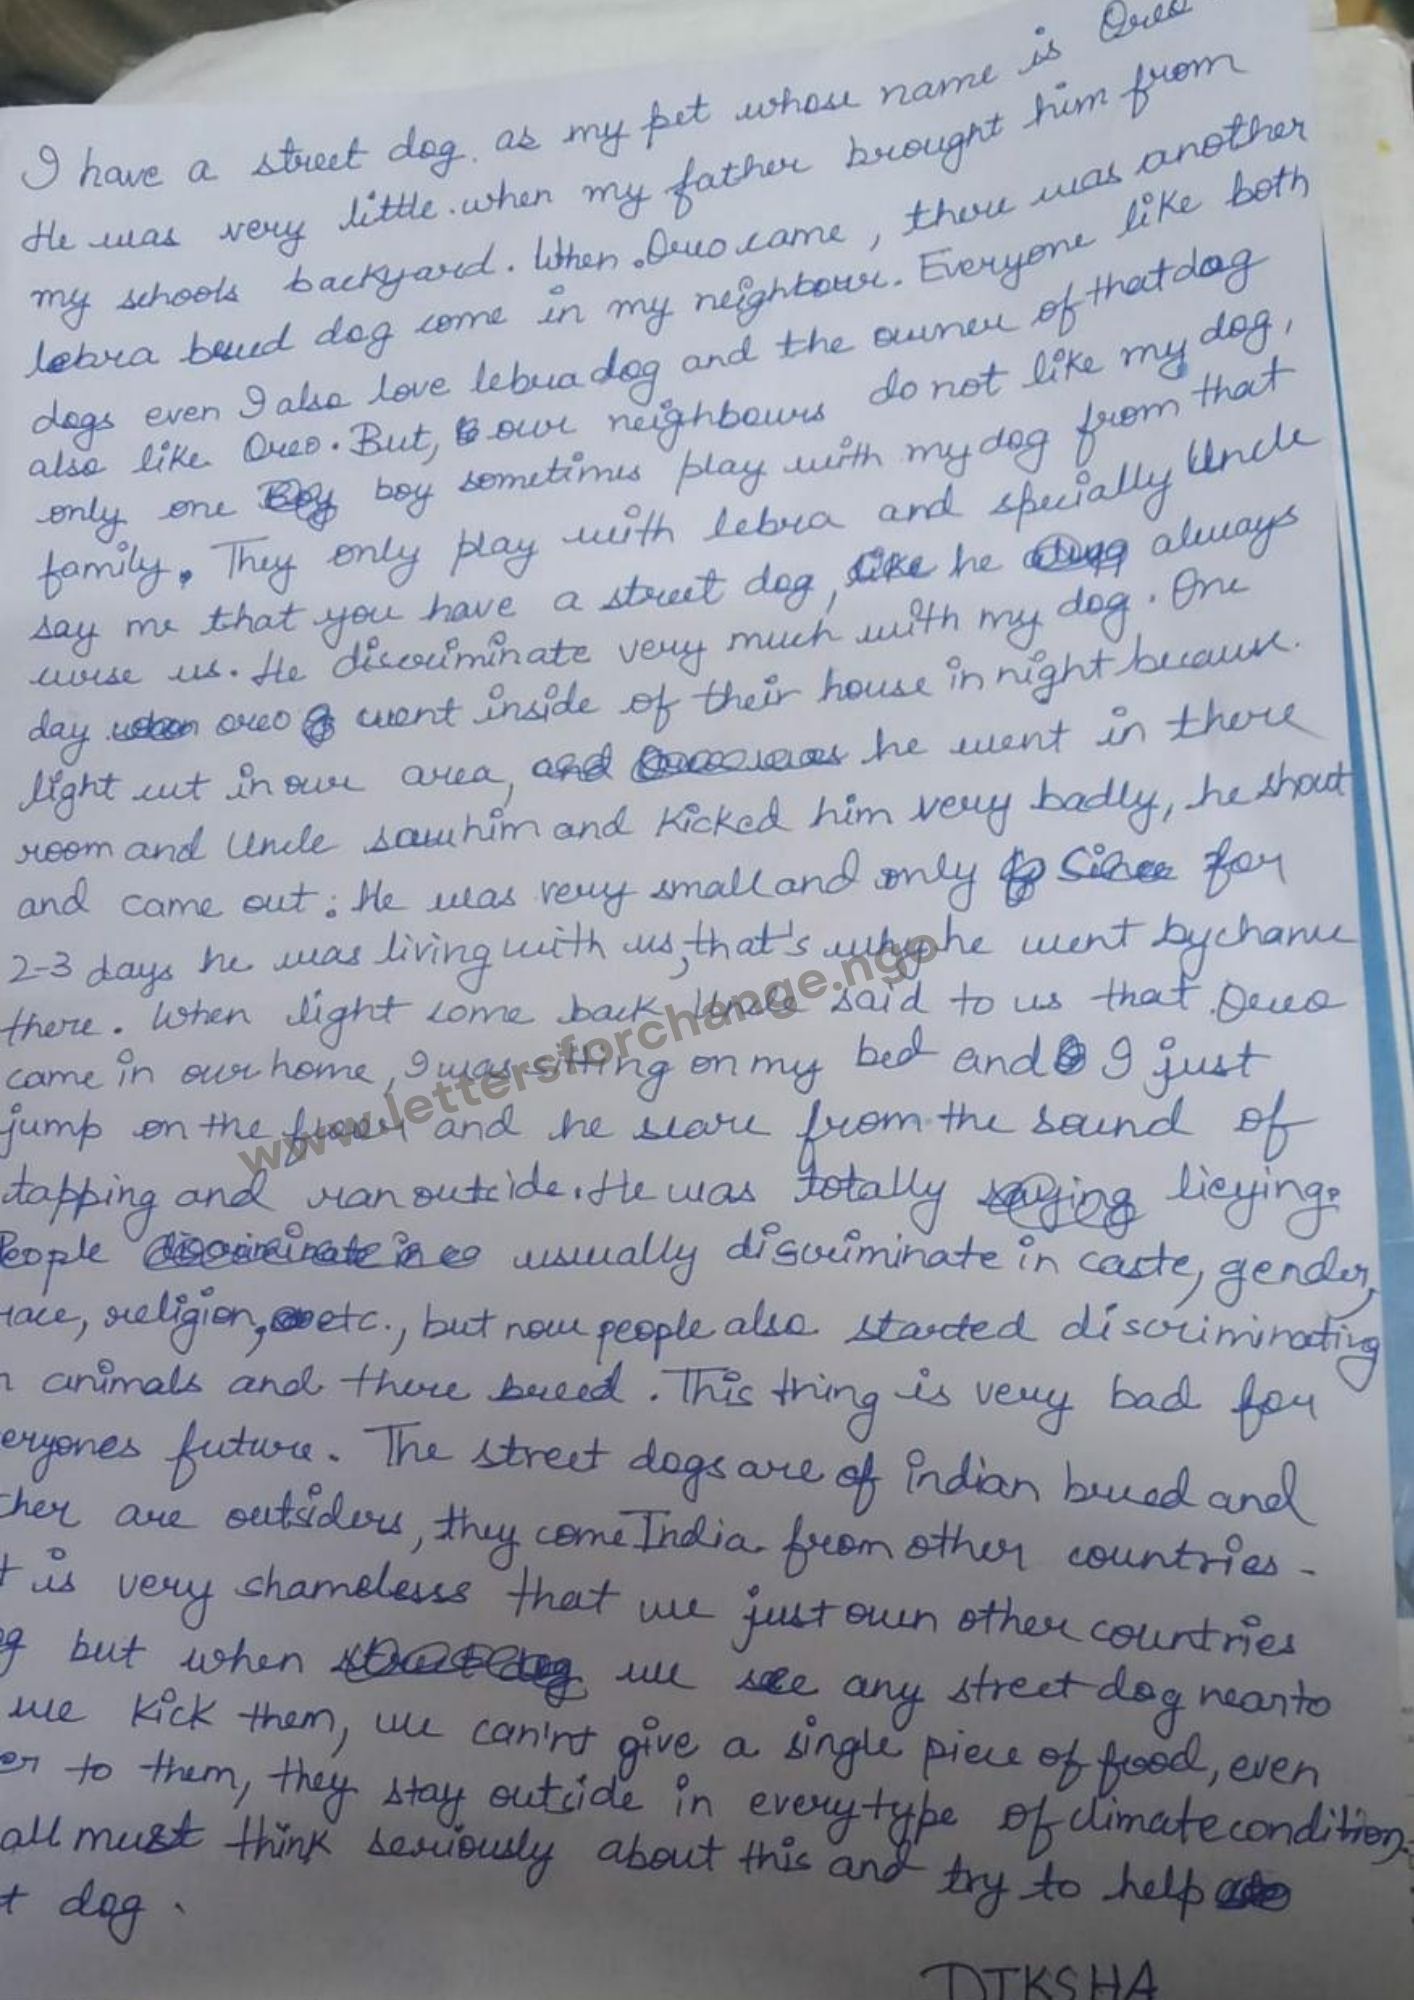 I have a street dog as my pet whose name is Oreo.
He was very little.when my father brought him from
my schools backyard. When Oreo came, there was another
lebra breed dog come in my neighbour. Everyone like both
dogs even I also love lebra dog and the owner of that dog
also like Oreo. But, our neighbours do not like my dog,
only one boy sometimes play with my dog from that
family. They only play with lebra and specially Uncle
say me that you have a street dog, like he always
curse us. He discriminate very much with my dog. One
day oreo went inside of their house in night because
light cut in our area, he went in there
room and Uncle saw him and kicked him very badly, he shout
and came out. He was very small and only for
2-3 days he was living with us, that's why he went by chance
there. When light come back Uncle said to us that Oreo
came in our home, I was sitting on my bed and I just
jump on the floor and he scare from the sound of
tapping and ran outside. He was totally lieying.
People usually discriminate in caste, gender,
race, religion, etc., but now people also started discriminating
animals and there breed. This thing is very bad for
eryones future. The street dogs are of indian breed and
ther are outsiders, they come India from other countries.
t is very shameless that we just own other countries
g but when we see any street dog near to
we kick them, we can'nt give a single piece of food, even
er to them, they stay outside in every type of climate condition,
all must think seriously about this and try to help
t dog.
DIKSHA
www.lettersforchange.ngo